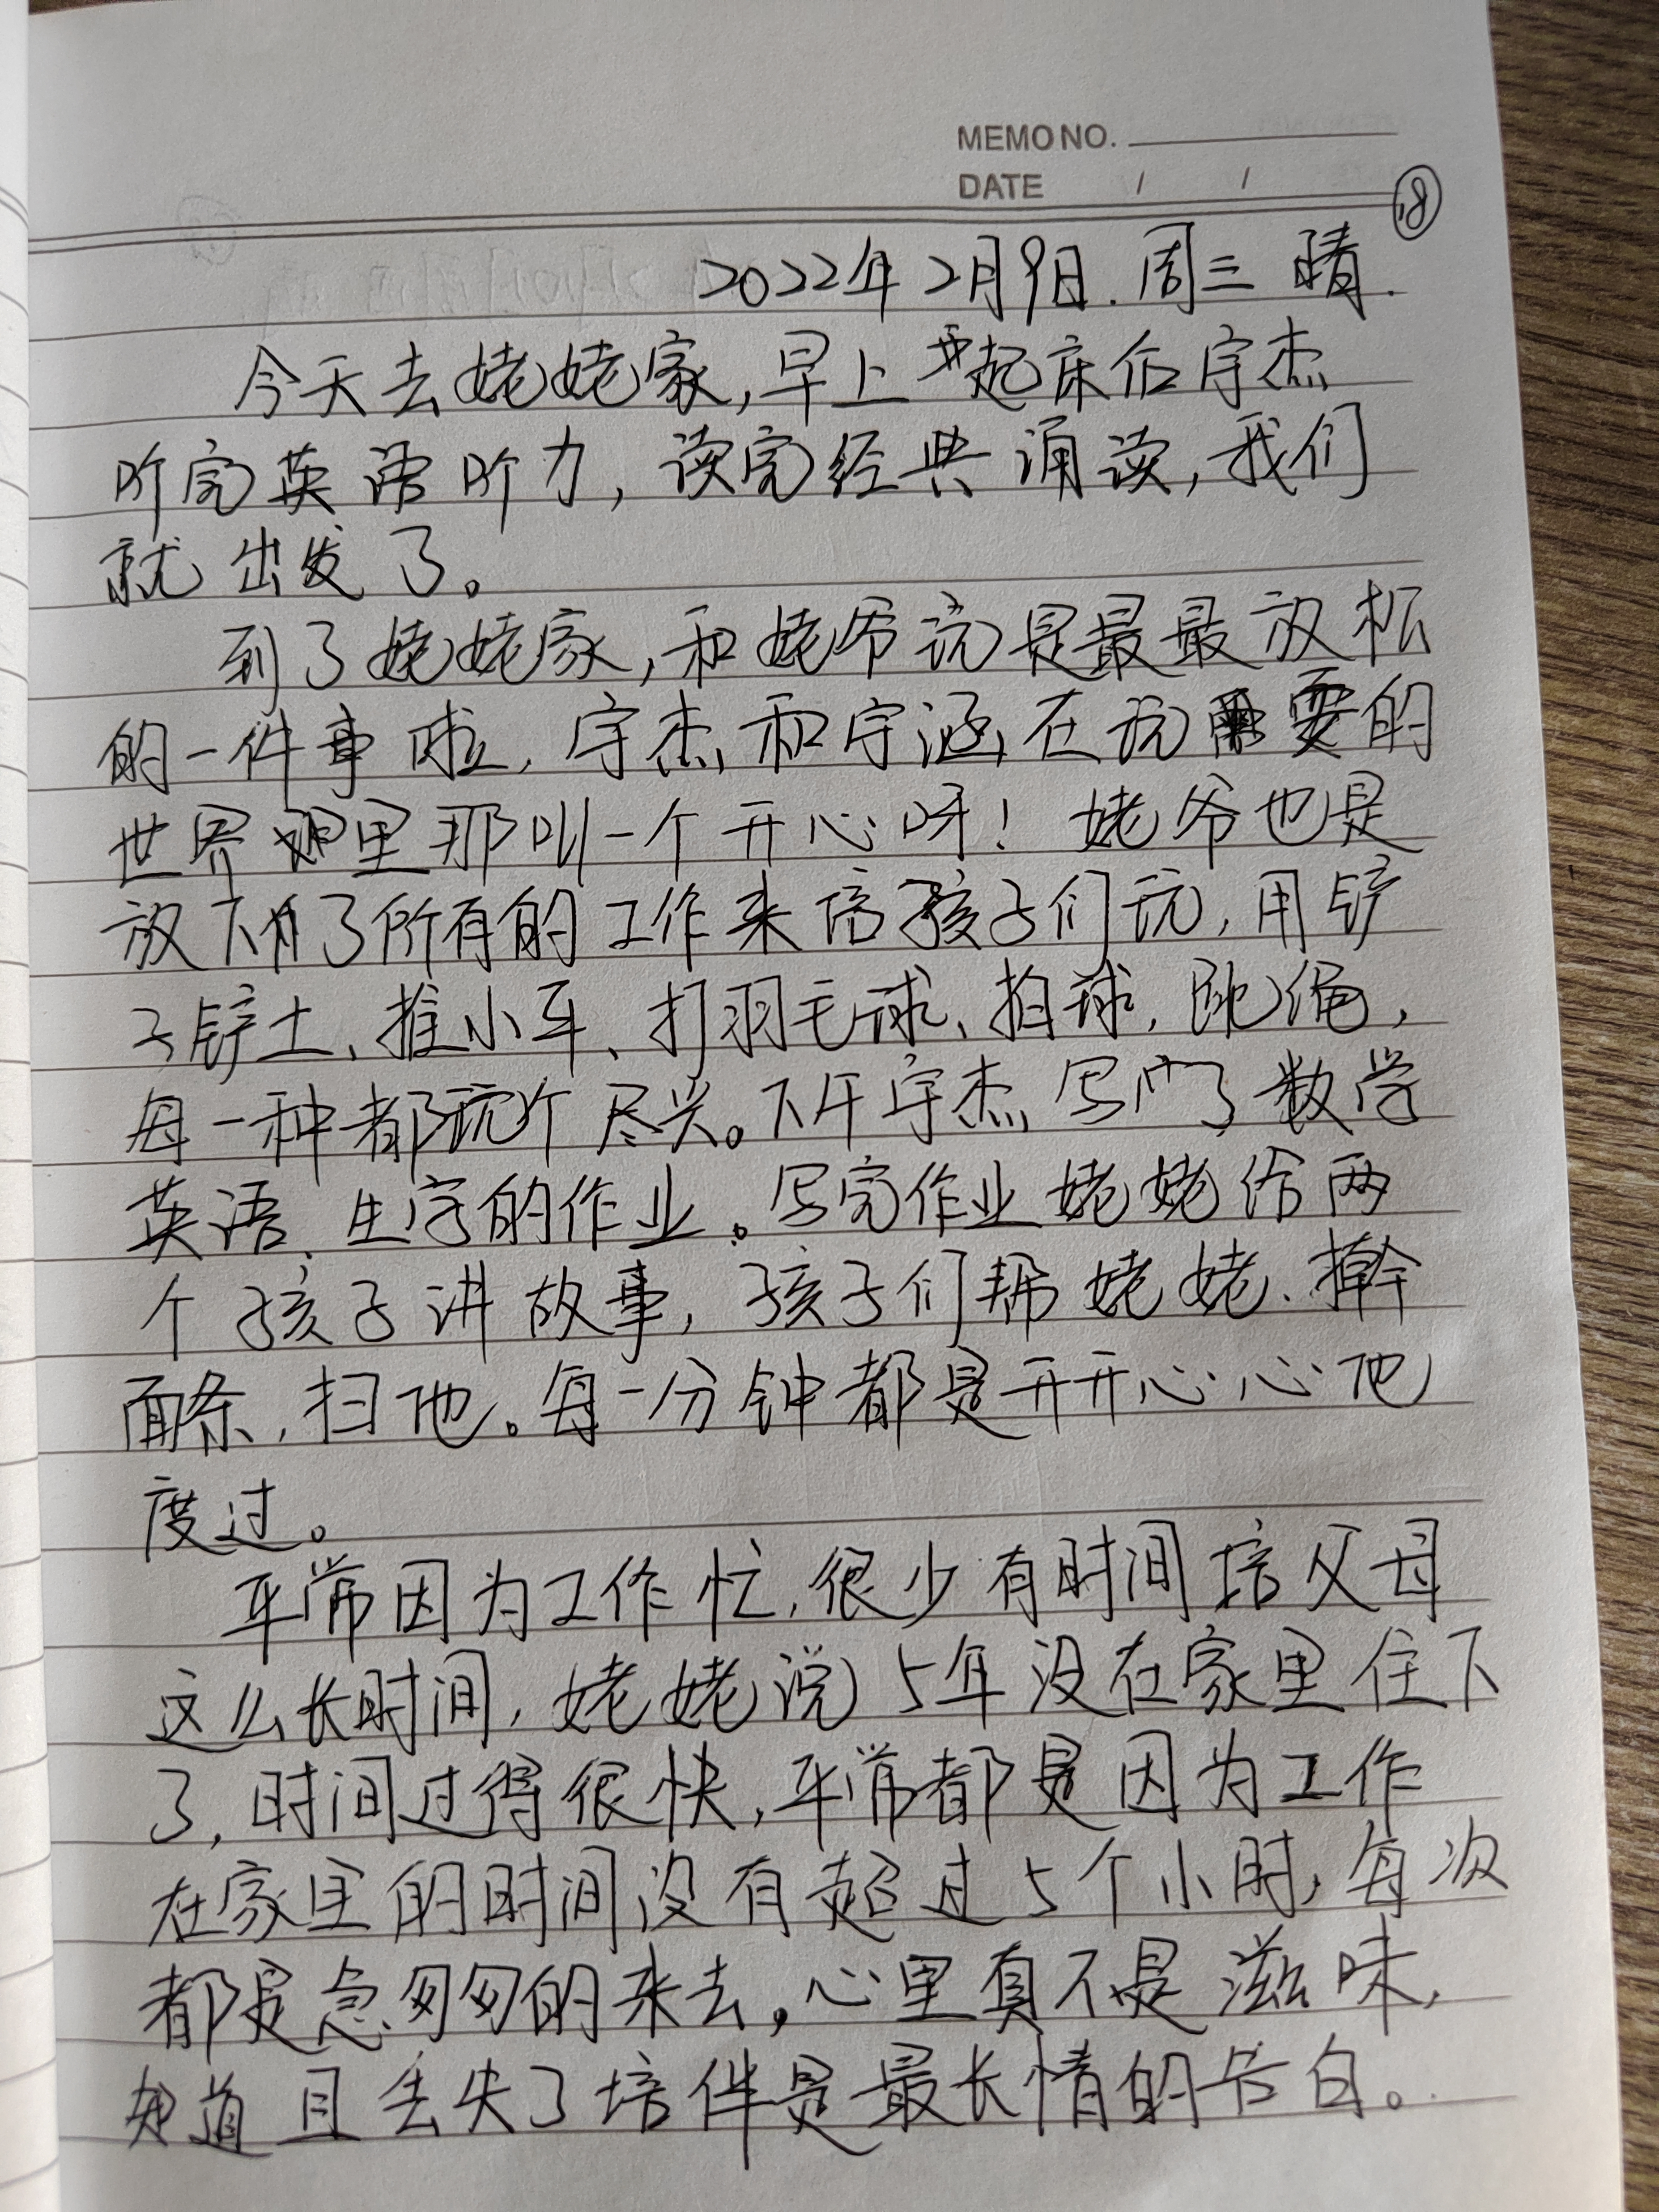 MEMO NO.
DATE / /
18
2022年2月9日.周三 晴.
今天去姥姥家,早上起床后宇杰
听完英语听力,读完经典诵读,我们
就出发了。
到了姥姥家,和姥爷玩是最最放松
的一件事啦,宇杰和宇涵在玩耍的
世界里那叫一个开心呀!姥爷也是
放下了所有的工作来培孩子们玩,用铲
子铲土、推小车、打羽毛球、拍球,跳绳,
每一种都玩个尽兴。下午宇杰写了数学
英语、生字的作业。写完作业姥姥给两
个孩子讲故事,孩子们帮姥姥、擀
面条,扫地。每一分钟都是开开心心地
度过。
平常因为工作忙,很少有时间培父母
这么长时间,姥姥说5年没在家里住下
了,时间过得很快,平常都是因为工作
在家里的时间没有超过5个小时,每次
都是急匆匆的来去,心里真不是滋味,
知道且丢失了培伴是最长情的告白。